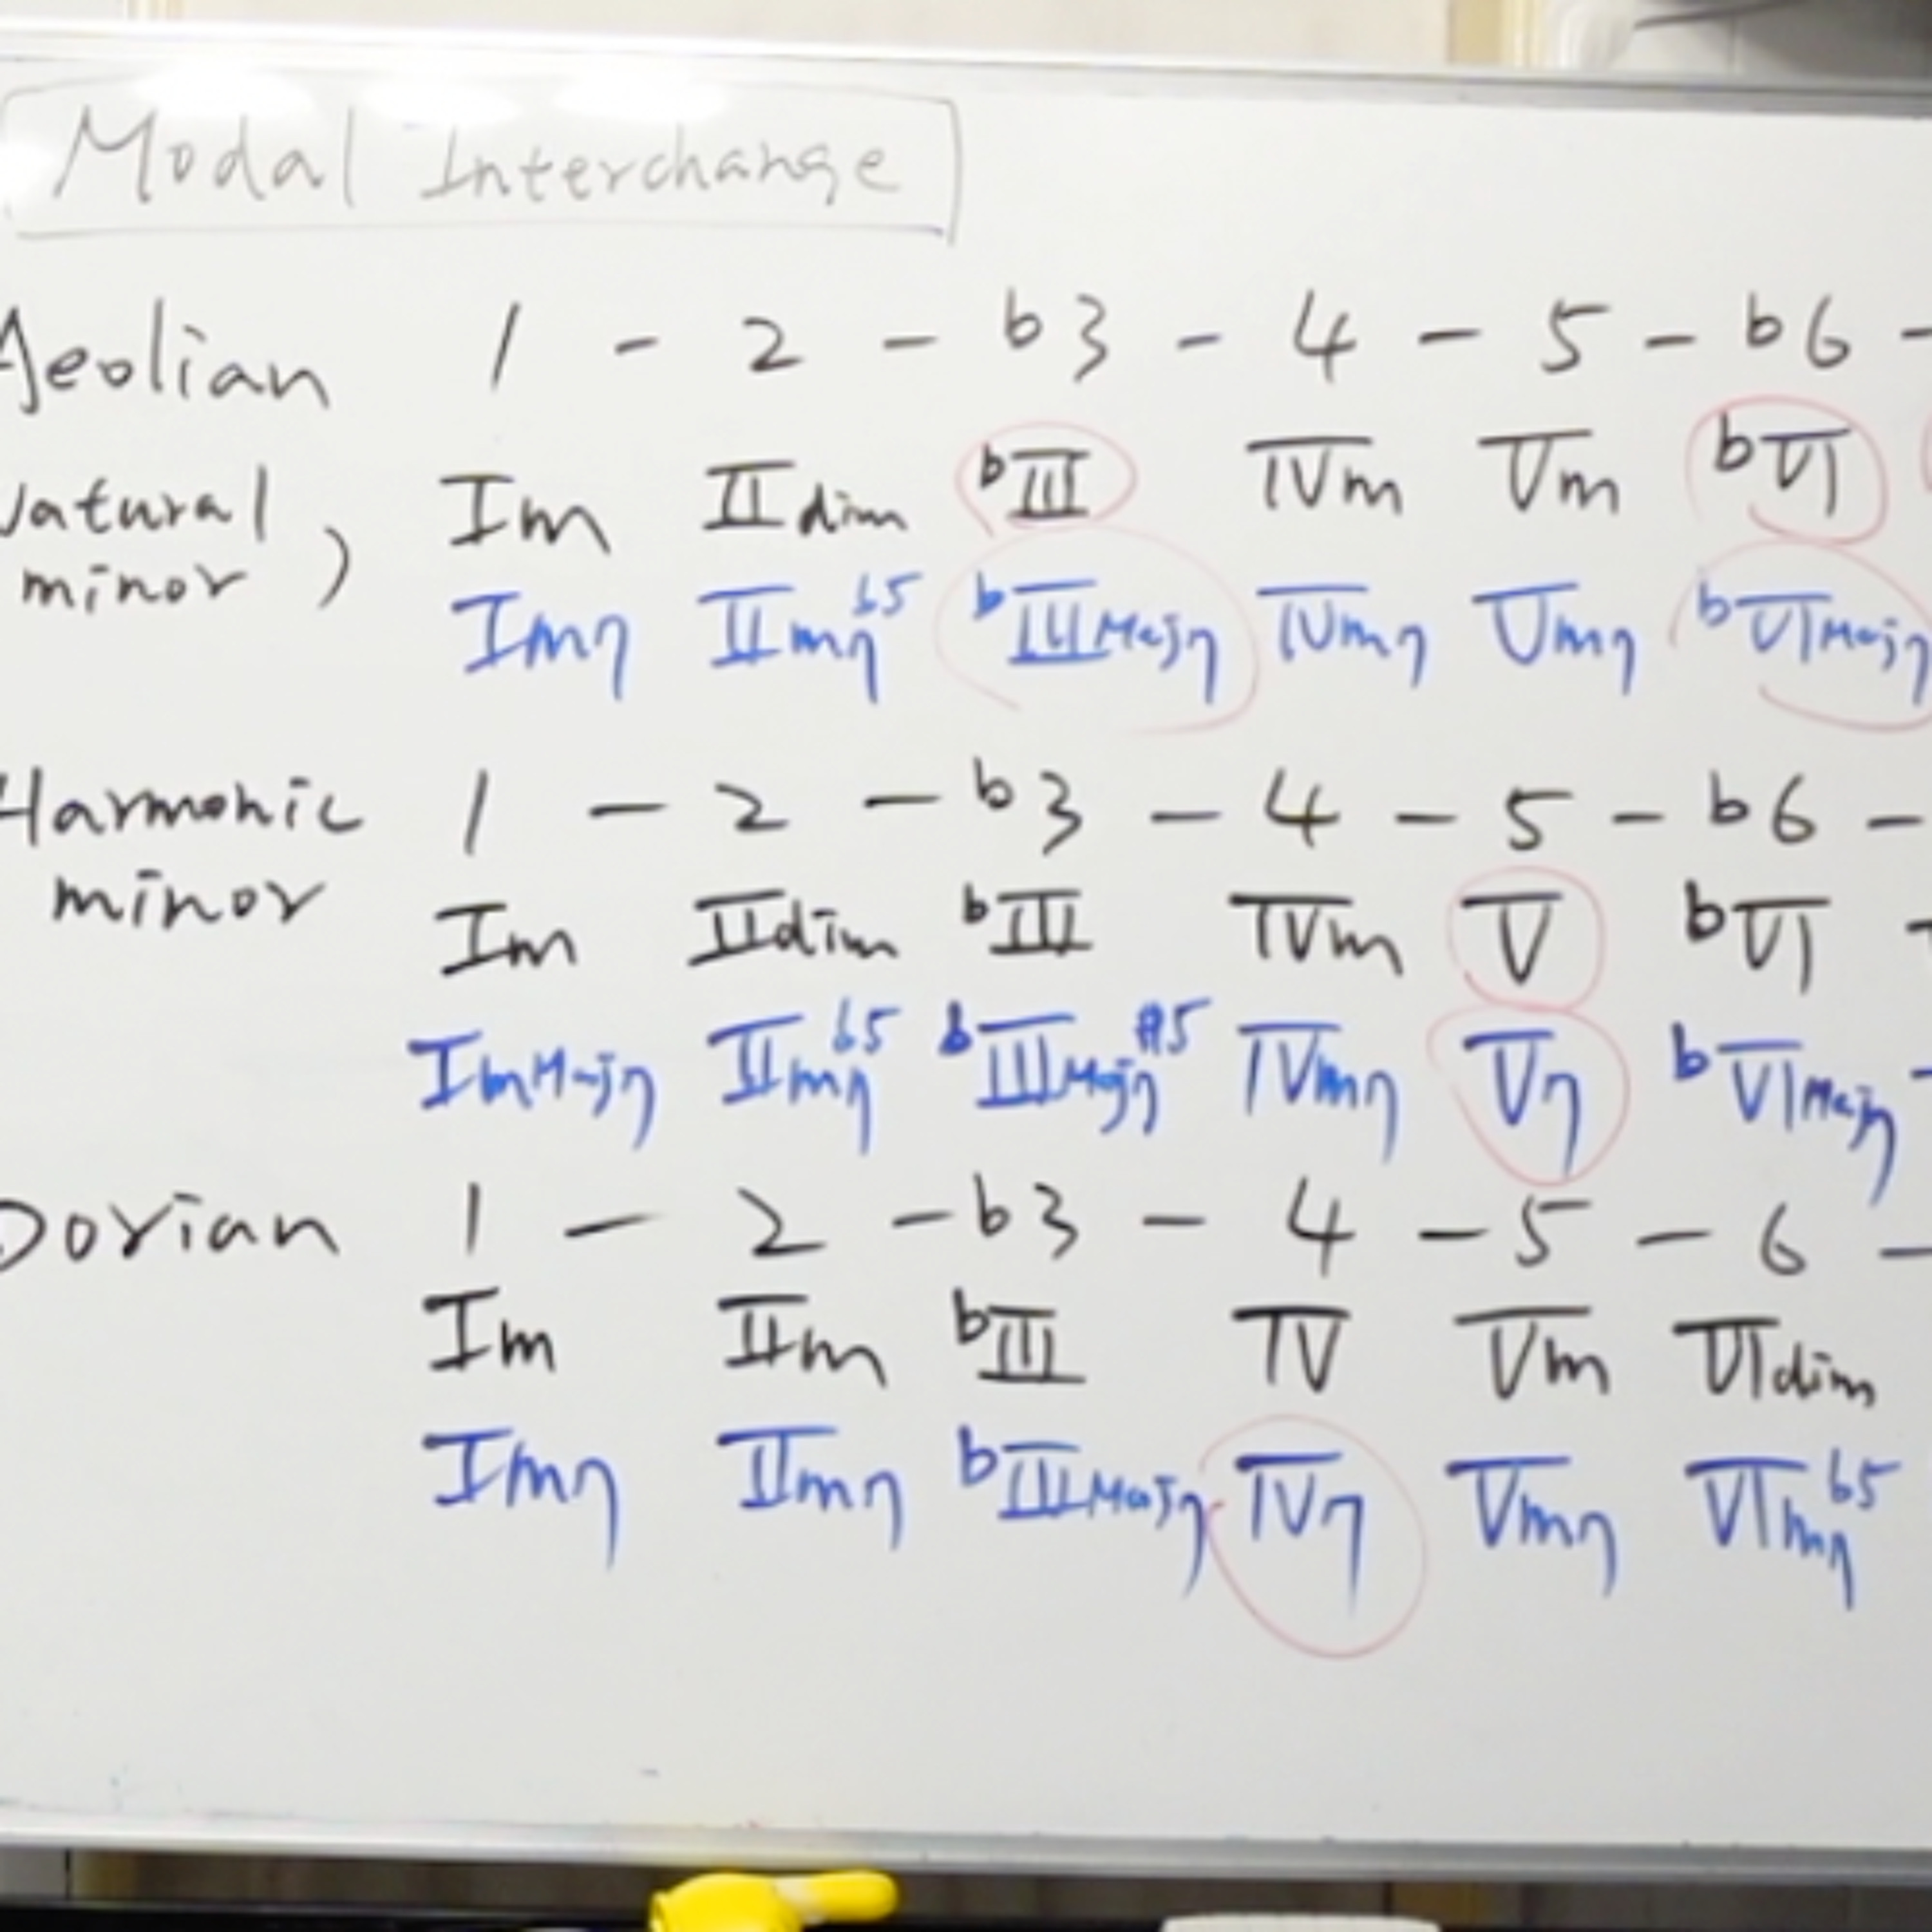 Modal Interchange
Aeolian 1 - 2 - b3 - 4 - 5 - b6 -
Natural minor) Im IIdim bIII IVm Vm bVI
Im7 IIm7b5 bIIIMaj7 IVm7 Vm7 bVIMaj7
Harmonic minor 1 - 2 - b3 - 4 - 5 - b6 -
Im IIdim bIII IVm V bVI
ImMaj7 IIm7b5 bIIIMaj7#5 IVm7 V7 bVIMaj7
Dorian 1 - 2 - b3 - 4 - 5 - 6 -
Im IIm bIII IV Vm VIdim
Im7 IIm7 bIIIMaj7 IV7 Vm7 VIm7b5